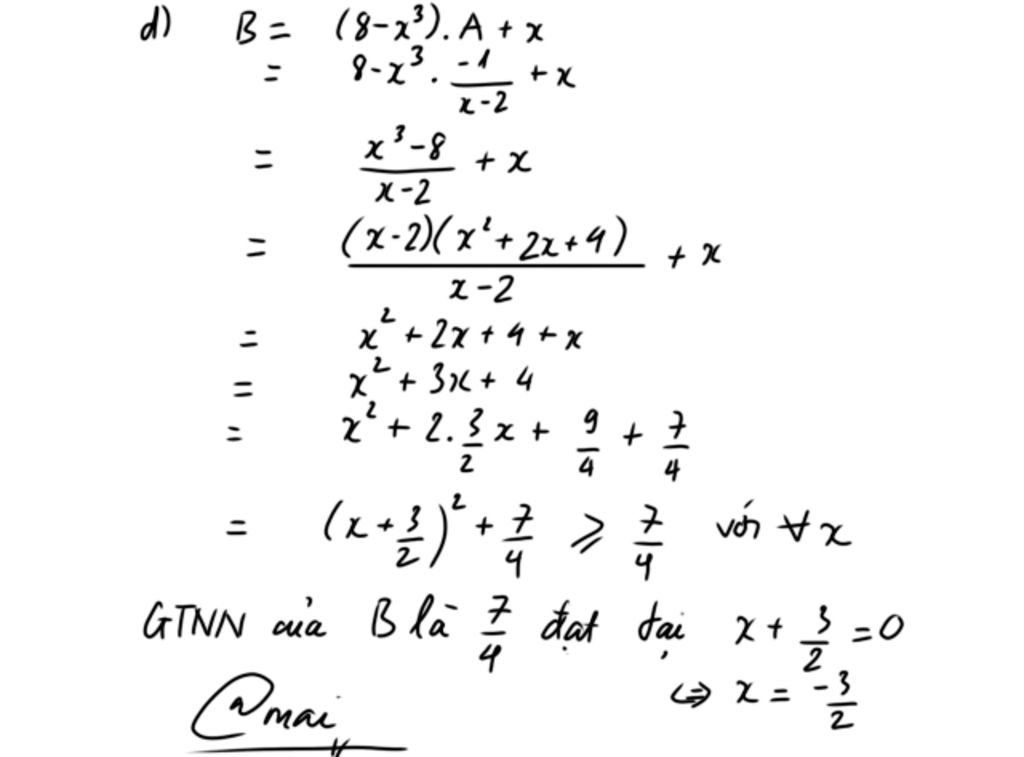 d) B = (8-x³). A + x
= 8-x³ . \frac{-1}{x-2} + x
= \frac{x³-8}{x-2} + x
= \frac{(x-2)(x²+2x+4)}{x-2} + x
= x² + 2x + 4 + x
= x² + 3x + 4
= x² + 2. \frac{3}{2} x + \frac{9}{4} + \frac{7}{4}
= (x + \frac{3}{2})² + \frac{7}{4} ⩾ \frac{7}{4} với ∀ x
GTNN của B là \frac{7}{4} đạt tại x + \frac{3}{2} = 0
⇔ x = \frac{-3}{2}
@mai